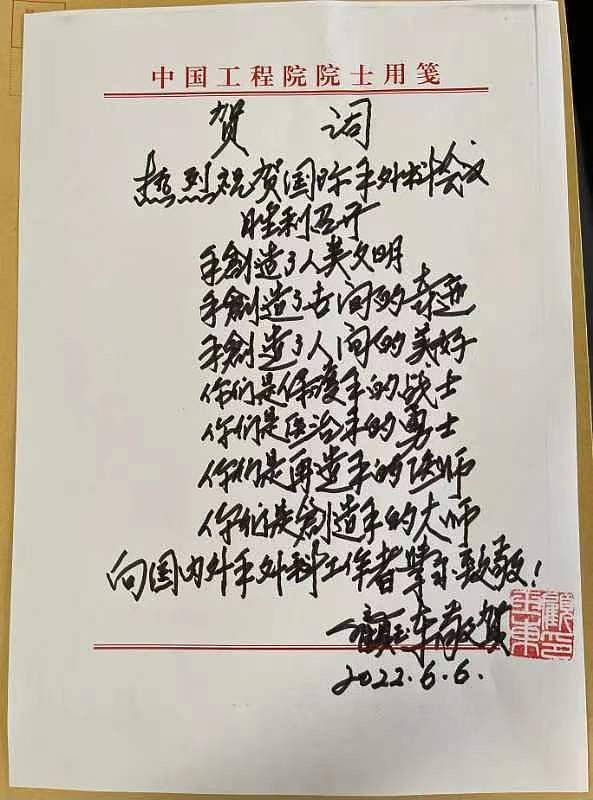 中国工程院院士用笺
贺 词
热烈祝贺国际手外科会议
胜利召开
手創造了人类文明
手創造了世间的奇迹
手創造了人间的美好
你们是保護手的战士
你们是医治手的勇士
你们是再造手的医师
你们是創造手的大师
向国内外手外科工作者擧手致敬!
顧玉东敬贺
2022.6.6.
顧印
玉東